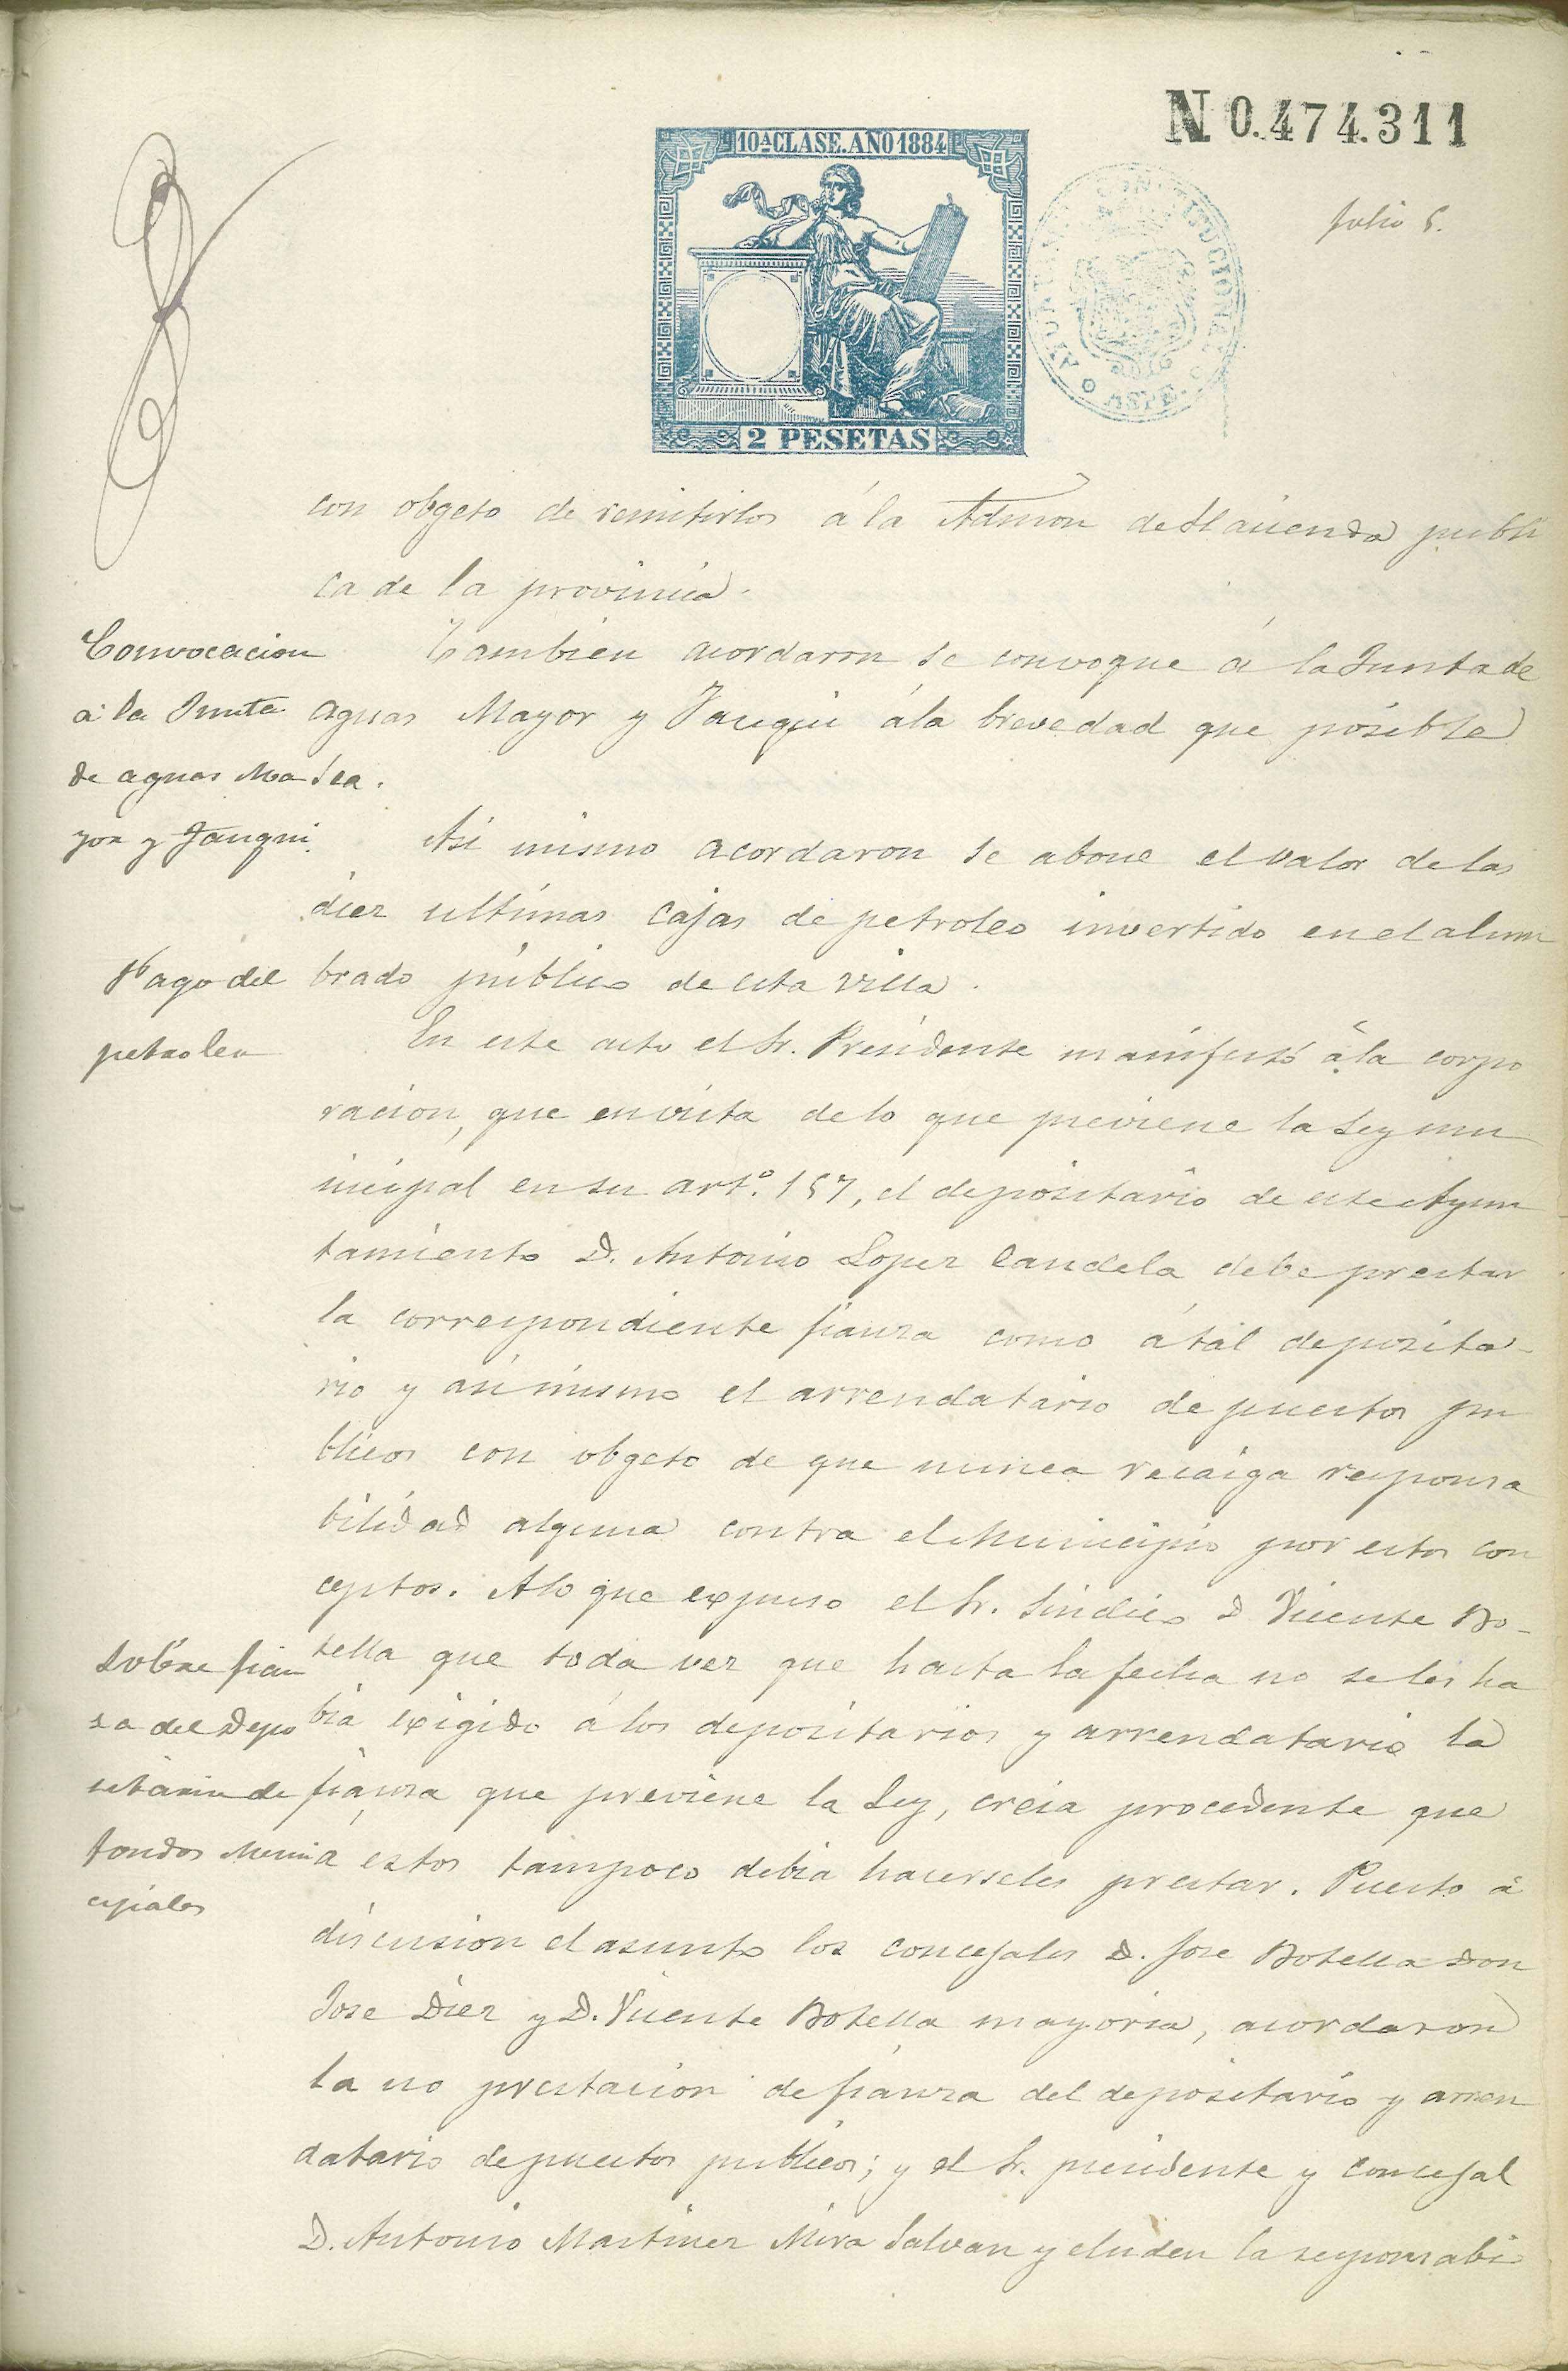 N 0.474.311
10ª CLASE. AÑO 1884
2 PESETAS
AYUNTAMIENTO CONSTITUCIONAL
ASPE
Julio 5.
con objeto de remitirlos á la Admon de Hacienda publi
ca de la provincia.
Convocacion
a la Junta
de aguas Ma
yor y Fauqui.
Tambien acordaron se convoque á la Junta de
aguas Mayor y Fauqui á la brevedad que posible
sea.
Asi mismo acordaron se abone el valor de las
diez ultimas cajas de petroleo invertido en el alum
Pago del
petroleo
brado público de esta villa.
En este acto el Sr. Presidente manifestó á la corpo
racion, que en vista de lo que previene la Ley mu
nicipal en su artº. 157, el depositario de este Ayun
tamiento D. Antonio Lopez Candela debe prestar
la correspondiente fianza como á tál deposita-
rio y asi mismo el arrendatario de puestos pu
blicos con obgeto de que nunca recaiga responsa
bilidad alguna contra el Municipio por estos con
ceptos. A lo que expuso el Sr. Sindico D Vicente Bo-
Sobre fian
za del Depo
sitario de
fondos Muni
cipales
tella que toda vez que hasta la fecha no se les ha
bia exigido á los depositarios y arrendatario la
fianza que previene la Ley, creia procedente que
a estos tampoco debia hacerseles prestar. Puesto á
discusion el asunto los concejales D. Jose Botella Don
Jose Diez y D. Vicente Botella mayoria, acordaron
la no prestacion de fianza del depositario y arren
datario de puestos publicos; y el Sr. presidente y concejal
D. Antonio Martinez Mira Salvan y eluden la responsabi